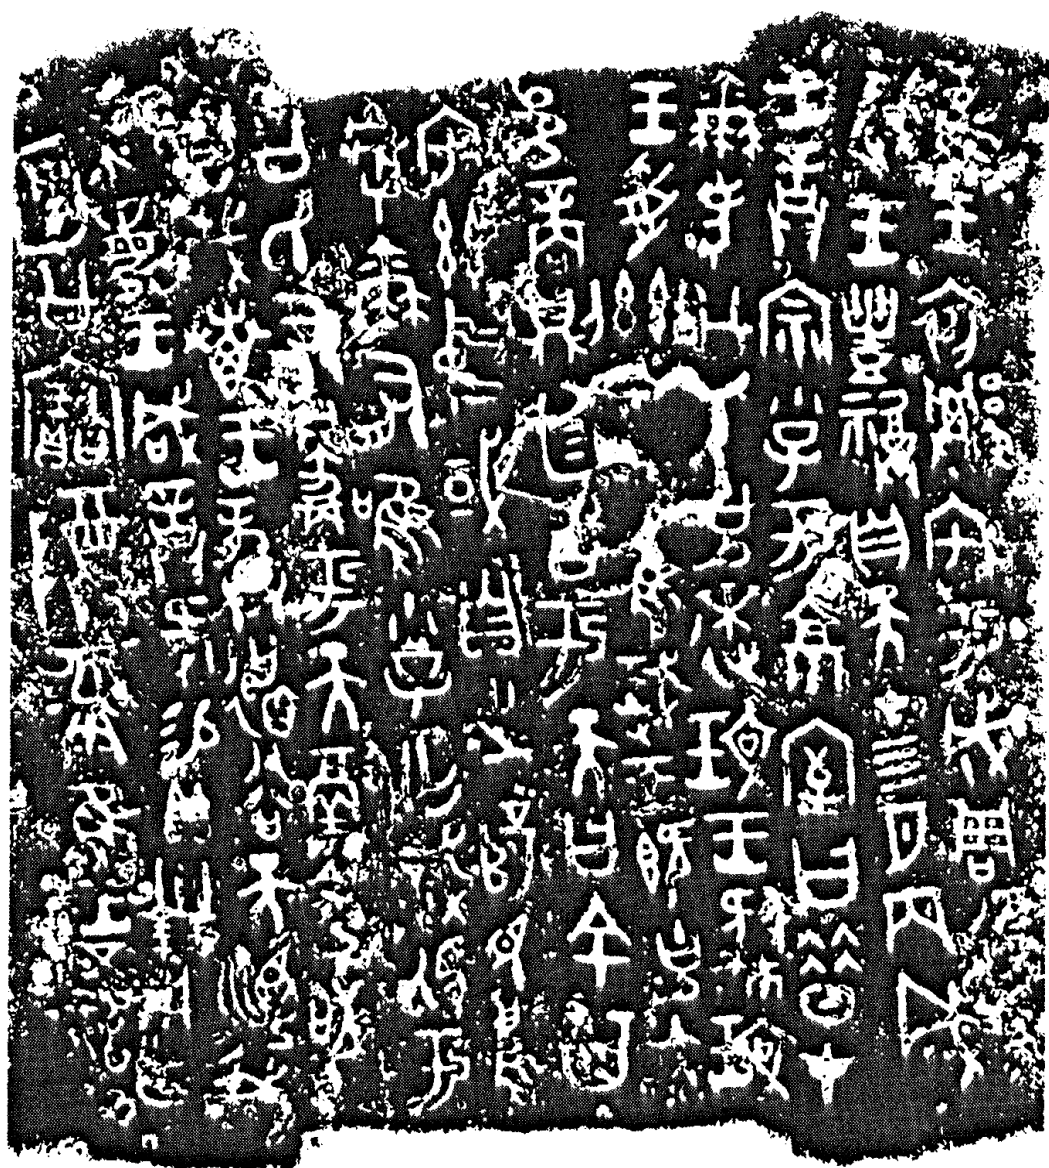 隹王初遷宅于成周復爯
珷王豊祼自天才四月丙戌
王誥宗小子于京室曰昔才
爾考公氏克逨玟王肄玟
王受茲大令隹珷王既克大
邑商則廷告于天曰余其
宅茲中或自之乂民烏
虖爾有唯小子亡識視于
公氏有爵于天徹令苟
享戈叀王龏德谷天順我
不每王咸誥何易貝卅朋用乍
公寶尊彝隹王五祀